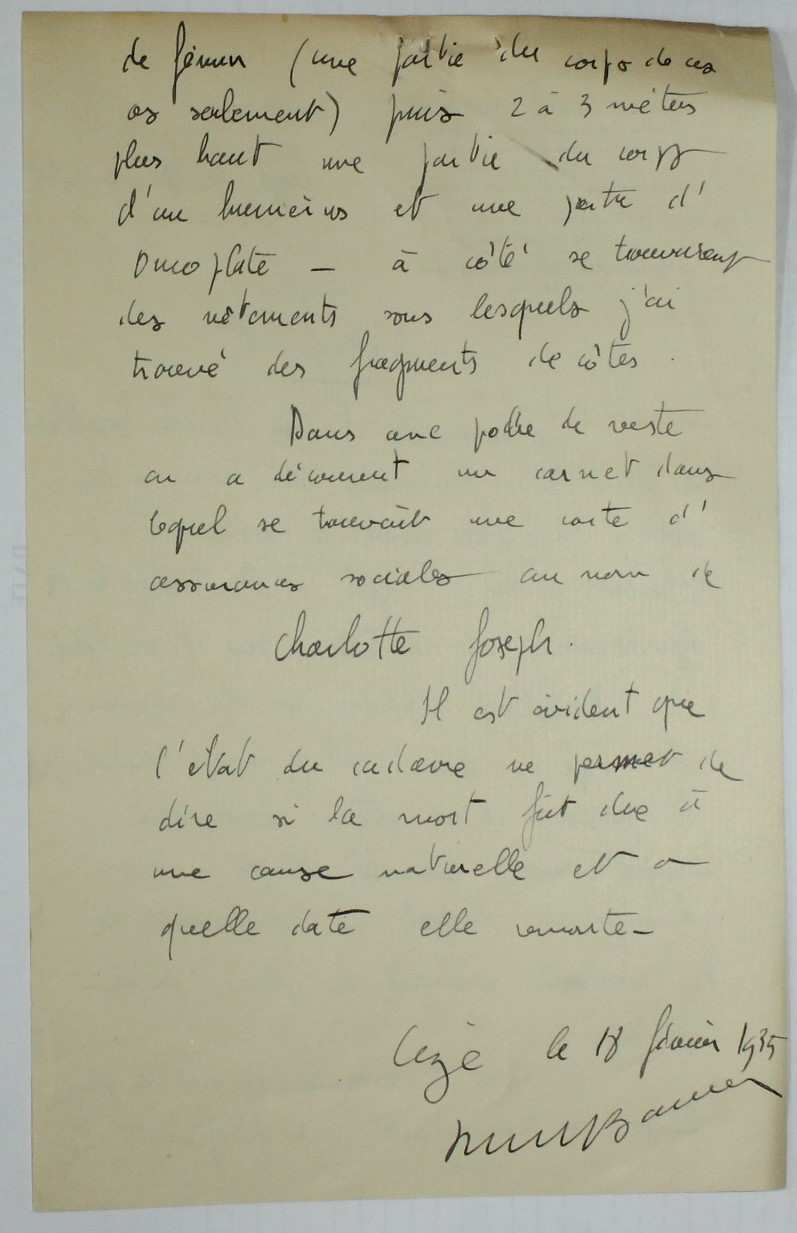 de fémur (une partie du corps de ces
os seulement) puis 2 à 3 mètres
plus haut une partie du corps
d'un humérus et une partie d'
omoplate — à côté se trouvaient
des vêtements sous lesquels j'ai
trouvé des fragments de côtes.
Dans une poche de veste
on a découvert un carnet dans
lequel se trouvait une carte d'
assurances sociales au nom de
Charlotte Joseph.
Il est évident que
l'état du cadavre ne permet de
dire si la mort fut due à
une cause naturelle et à
quelle date elle remonte —
le 18 février 1935